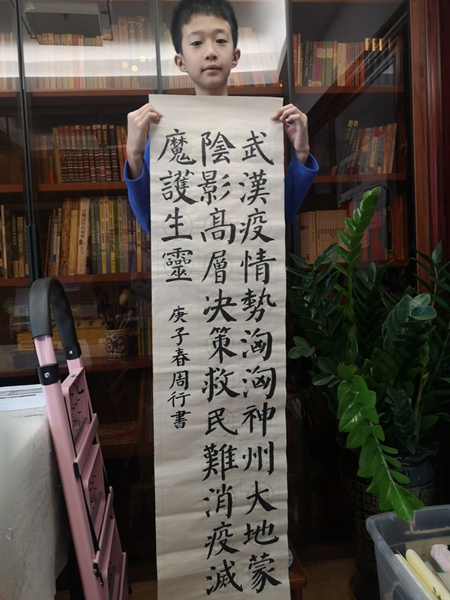 武漢疫情勢洶洶神州大地蒙
陰影高層决策救民難消疫滅
魔護生靈
庚子春周行書